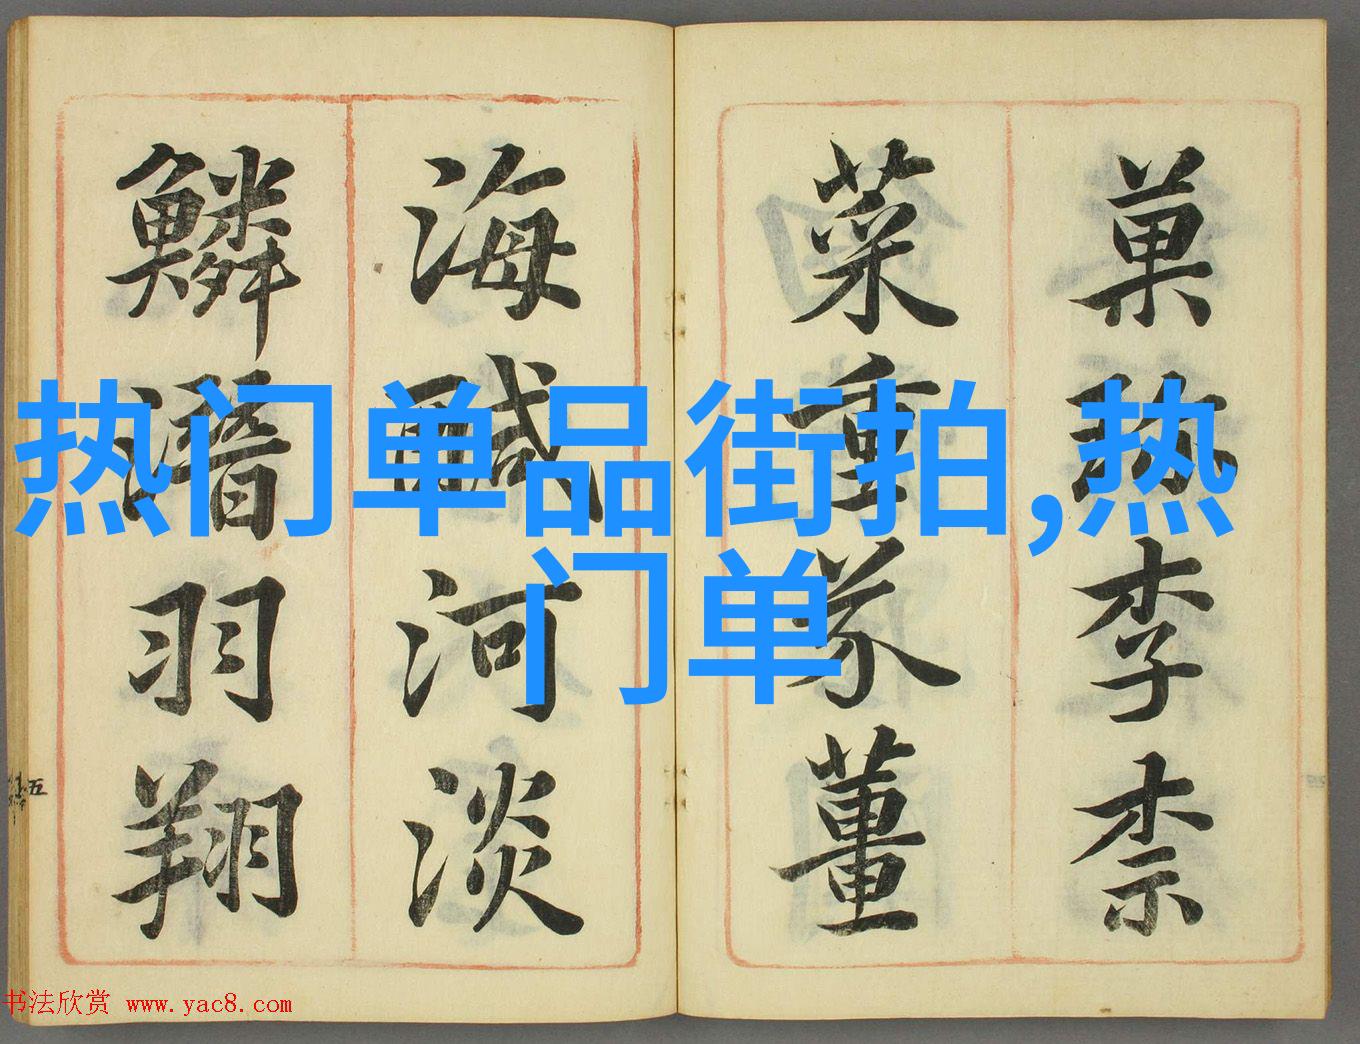 菓珎李柰
菜重芥薑
海鹹河淡
鱗潛羽翔
五
热门单品街拍,热
门单
书法欣赏 www.yac8.com